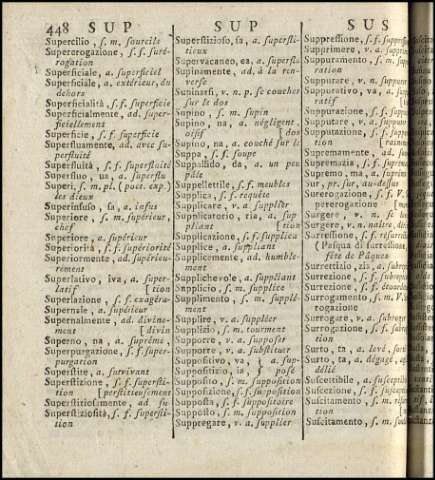 448 SUP SUP SUS
Supercilio, s. m. sourcils
Supererogazione, s. f. suré-
rogation
Superficiale, a. superficiel
Superficiale, a. extérieur, du
dehors
Superficialità, s. f. superficie
Superficialmente, ad. super-
ficiellement
Superficie, s. f. superficie
Superfluamente, ad. avec su-
perfluité
Superfluità, s. f. superfluité
Superfluo, ua, a. superflu
Superi, s. m. pl. (poet. exp.)
les dieux
Superinfuso, sa, a. infus
Superiore, s. m. supérieur,
chef
Superiore, a. supérieur
Superiorità, s. f. supériorité
Superiormente, ad. supérieu-
rement
Superlativo, iva, a. super-
latif [tion
Superlazione, s. f. exagéra-
Supernale, a. supérieur
Supernalmente, ad. divine-
ment [divin
Superno, na, a. suprême,
Superpurgazione, s. f. super-
purgation
Superstite, a. survivant
Superstizione, s. f. supersti-
tion [perstitieusement
Superstiziosamente, ad. su-
Superstiziosità, s. f. supersti-
tion
Superstizioso, sa, a. supersti-
tieux
Supervacaneo, ea, a. superflu
Supinamente, ad. à la ren-
verse
v. n. p. se coucher
sur le dos
Supino, s. m. supin
Supino, na, a. négligent,
oisif [dos
Supino, na, a. couché sur le
Suppa, s. f. soupe
Suppallido, da, a. un peu
pâle
Suppellettile, s. f. meubles
Supplica, s. f. requête
Supplicare, v. a. supplier
Supplicatorio, ria, a. sup
pliant [tion
Supplicazione, s. f. supplica
Supplice, a. suppliant
Supplicemente, ad. humble-
ment
Supplichevole, a. suppliant
Supplicio, s. m. supplice
Supplimento, s. m. supplé-
ment
Supplire, v. a. suppléer
Supplizio, s. m. tourment
Supporre, v. a. supposer
Supporre, v. a. substituer
Suppositivo, va, a. sup-
Suppositizio, ia, posé
Supposito, s. m. supposition
Supposizione, s. f. supposition
Supposta, s. f. suppositoire
Supposto, s. m. supposition
Suppregare, v. a. supplier
Suppressione, s. f.
Supprimere, v. a.
Suppuramento, s. m.
ration
Suppurare, v. n.
Suppurativo, va, a.
ratif
Suppurazione, s. f.
Supputare, v. a.
Supputazione, s. f.
tion
Supremamente, ad.
Supremazia, s. f.
Supremo, ma, a.
Sur, pr. sur, au-dessus
Surerogazione, s. f. V.
pererogazione
Surgere, v. n. se
Surgere, v. n.
Surressione, s. f.
(Pasqua di surressione,
fête de Pâques
Surrettizio, zia, a.
Surrezione, s. f.
Surrezione, s. f.
Surrogamento, s. m. V.
rogazione
Surrogare, v. a.
Surrogazione, s. f.
tion
Surto, ta, a. levé,
Surto, ta, a. dégagé,
délié
Suscettibile, a.
Suscezione, s. f.
Suscitamento, s. m.
tion
Suscitamento, s. m.